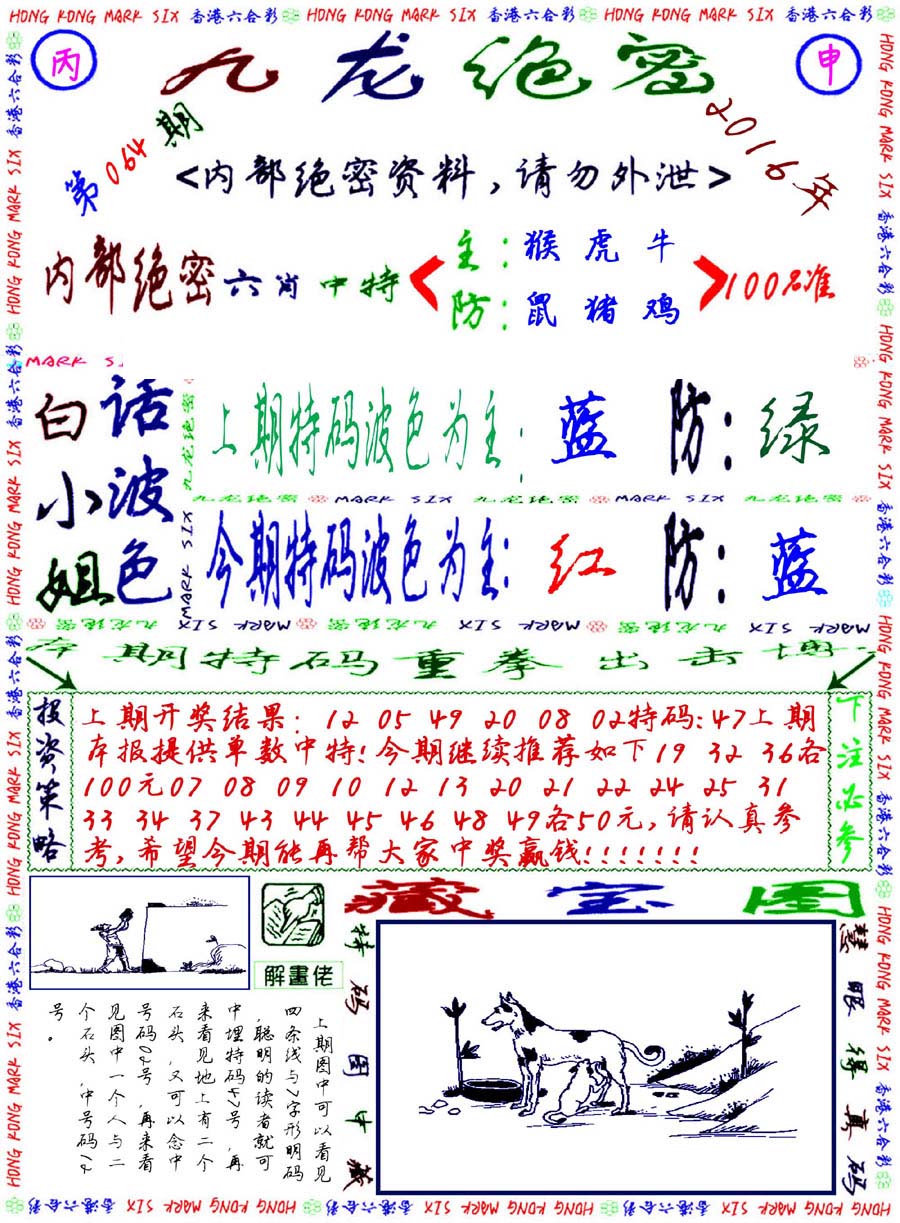 HONG KONG MARK SIX 香港六合彩 HONG KONG MARK SIX 香港六合彩 HONG KONG MARK SIX 香港六合彩
丙
九龙绝密
申
第064期
2016年
<内部绝密资料,请勿外泄>
内部绝密六肖中特
主:猴虎牛
防:鼠猪鸡
100%准
MARK S
白话
小波
姐色
九龙绝密
MARK SIX
上期特码波色为主: 蓝 防: 绿
九龙绝密 MARK SIX 九龙绝密 MARK SIX 九龙绝密
今期特码波色为主: 红 防: 蓝
九龙绝密 MARK SIX 九龙绝密 MARK SIX 九龙绝密 MARK SIX
本期特码重拳出击博
投资策略
上期开奖结果: 12 05 49 20 08 02特码:47上期
本报提供单数中特!今期继续推荐如下19 32 36各
100元07 08 09 10 12 13 20 21 22 24 25 31
33 34 37 43 44 45 46 48 49各50元,请认真参
考,希望今期能再帮大家中奖赢钱!!!!!!!
下注必参
解畫佬
藏宝图
上期图中可以看见
四条线与7字形明码
,聪明的读者就可
中埋特码47号,再
来看见地上有二个
石头,又可以念中
号码02号,再来看
见图中一个人与二
个石头,中号码12
号。
特码图中藏
慧眼得真码
HONG KONG MARK SIX 香港六合彩 HONG KONG MARK SIX 香港六合彩 HONG KONG MARK SIX 香港六合彩